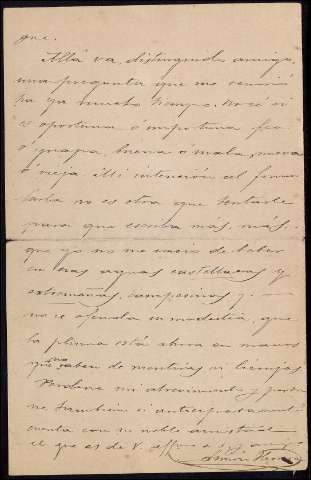 que.
Allá va, distinguido amigo,
una pregunta que me ocurrió
ha ya mucho tiempo. No sé si
es oportuna ó importuna, fea
ó guapa, buena ó mala, nueva
ó vieja. Mi intención al formu
larla no es otra que tentarle
para que escriba más, más...
que yo no me sacio de beber
en esas aguas castellanas y
extremeñas, campesinas y...
no se ofenda su modestia, que
la pluma está ahora en manos
que no saben de mentiras ni lisonjas
Perdone mi atrevimiento y perdó
neme también si anticipadamente
cuenta con su noble amistad
el que es de V. affmo. s.s. y amigo